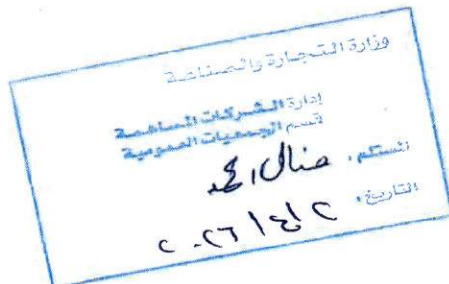 وزارة التجارة والصناعة
إدارة الشركات المساهمة
قسم الجمعيات العمومية
المستلم: منال
التاريخ: ٢٠٢٦/٤/٢